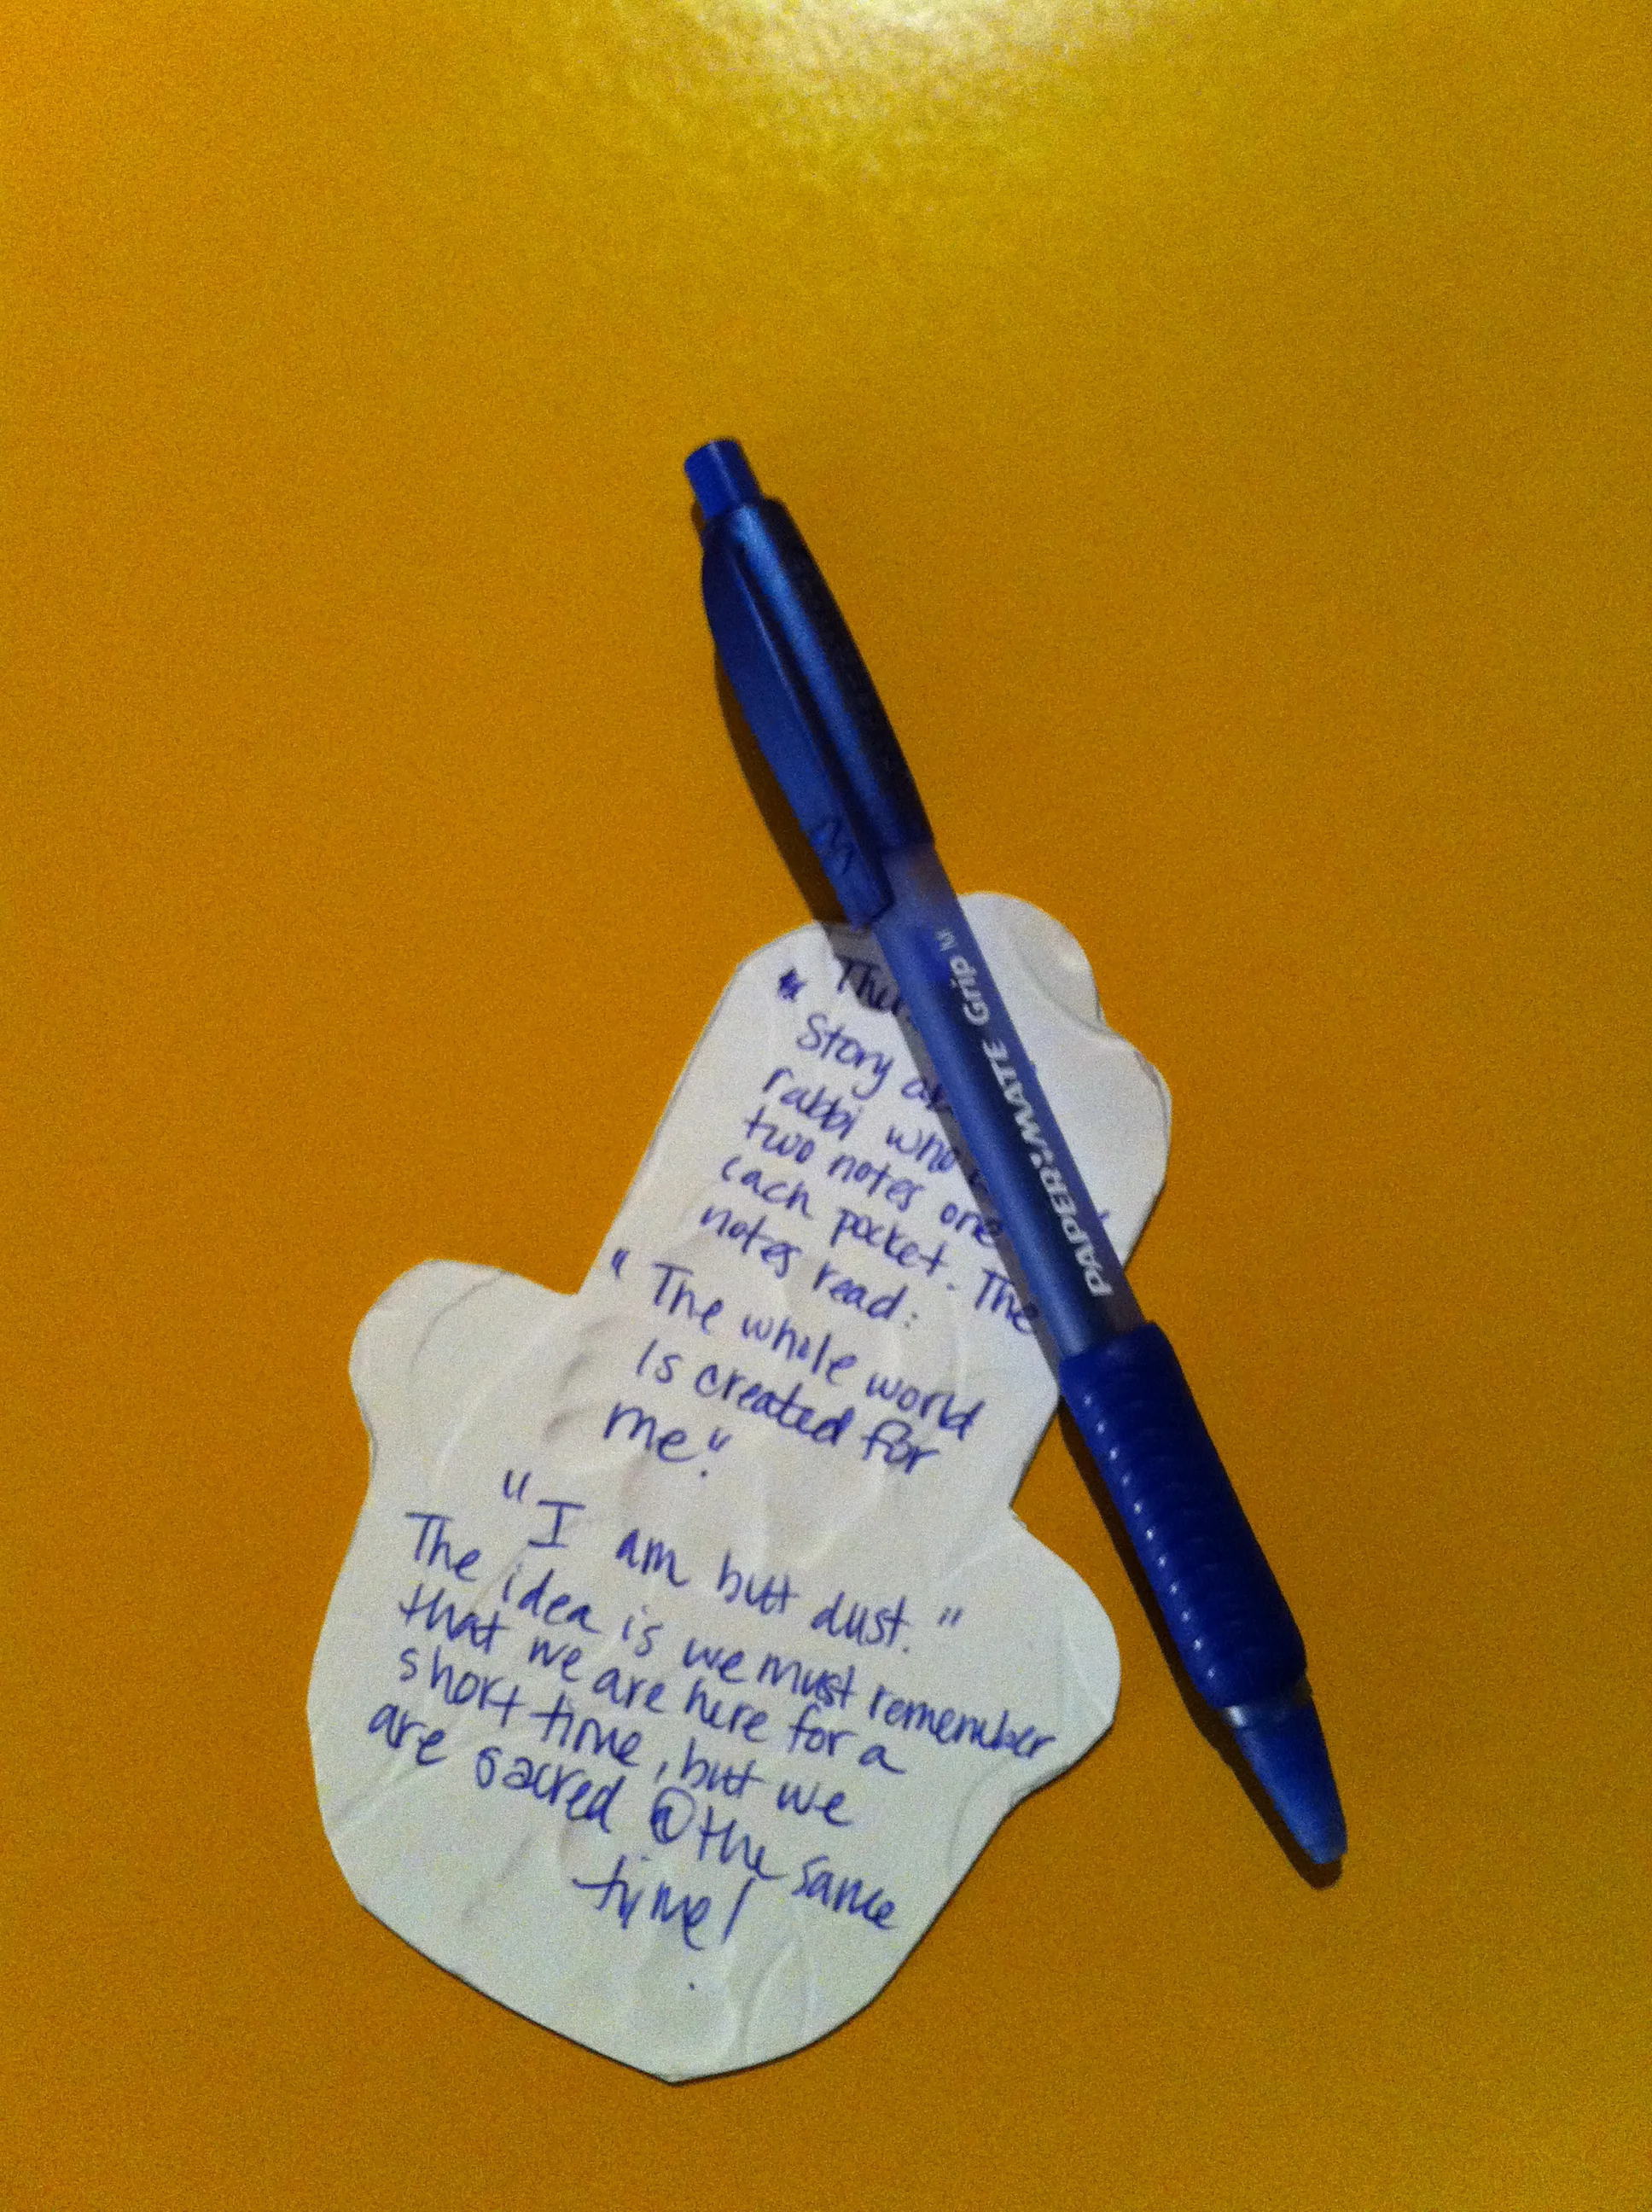 Story
rabbi who
two notes one
each pocket. The
notes read:
" The whole world
is created for
me."
"I am but dust."
The idea is we must remember
that we are here for a
short time, but we
are sacred @ the same
time!
PAPER:MATE Grip